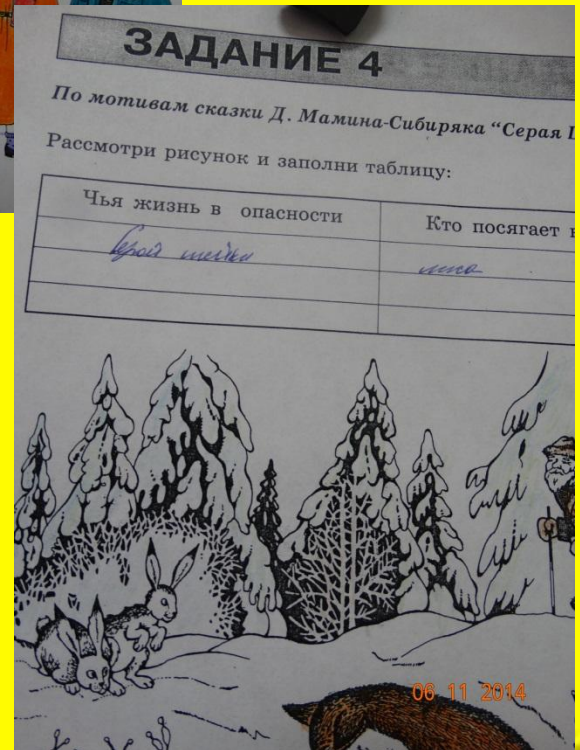 ЗАДАНИЕ 4
По мотивам сказки Д. Мамина-Сибиряка “Серая
Рассмотри рисунок и заполни таблицу:
Чья жизнь в опасности
Кто посягает
Серой шейки
лиса
06 11 2014